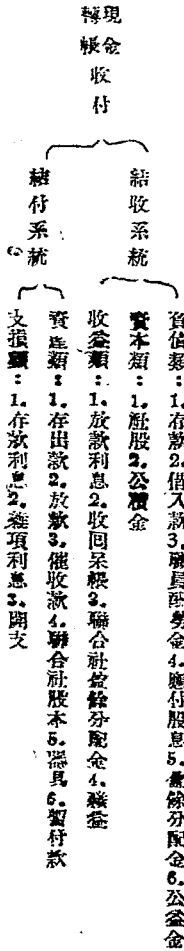 現金收付
轉帳
結收系統
負債類：1.存款2.借入款3.職員酬勞金4.應付股息5.盈餘分配金6.公益金
資本類：1.社股2.公積金
收益類：1.放款利息2.收回呆帳3.聯合社盈餘分配金4.雜益
結付系統
資產類：1.存出款2.放款3.催收款4.聯合社股本5.器具6.暫付款
支損類：1.存款利息2.雜項利息3.開支